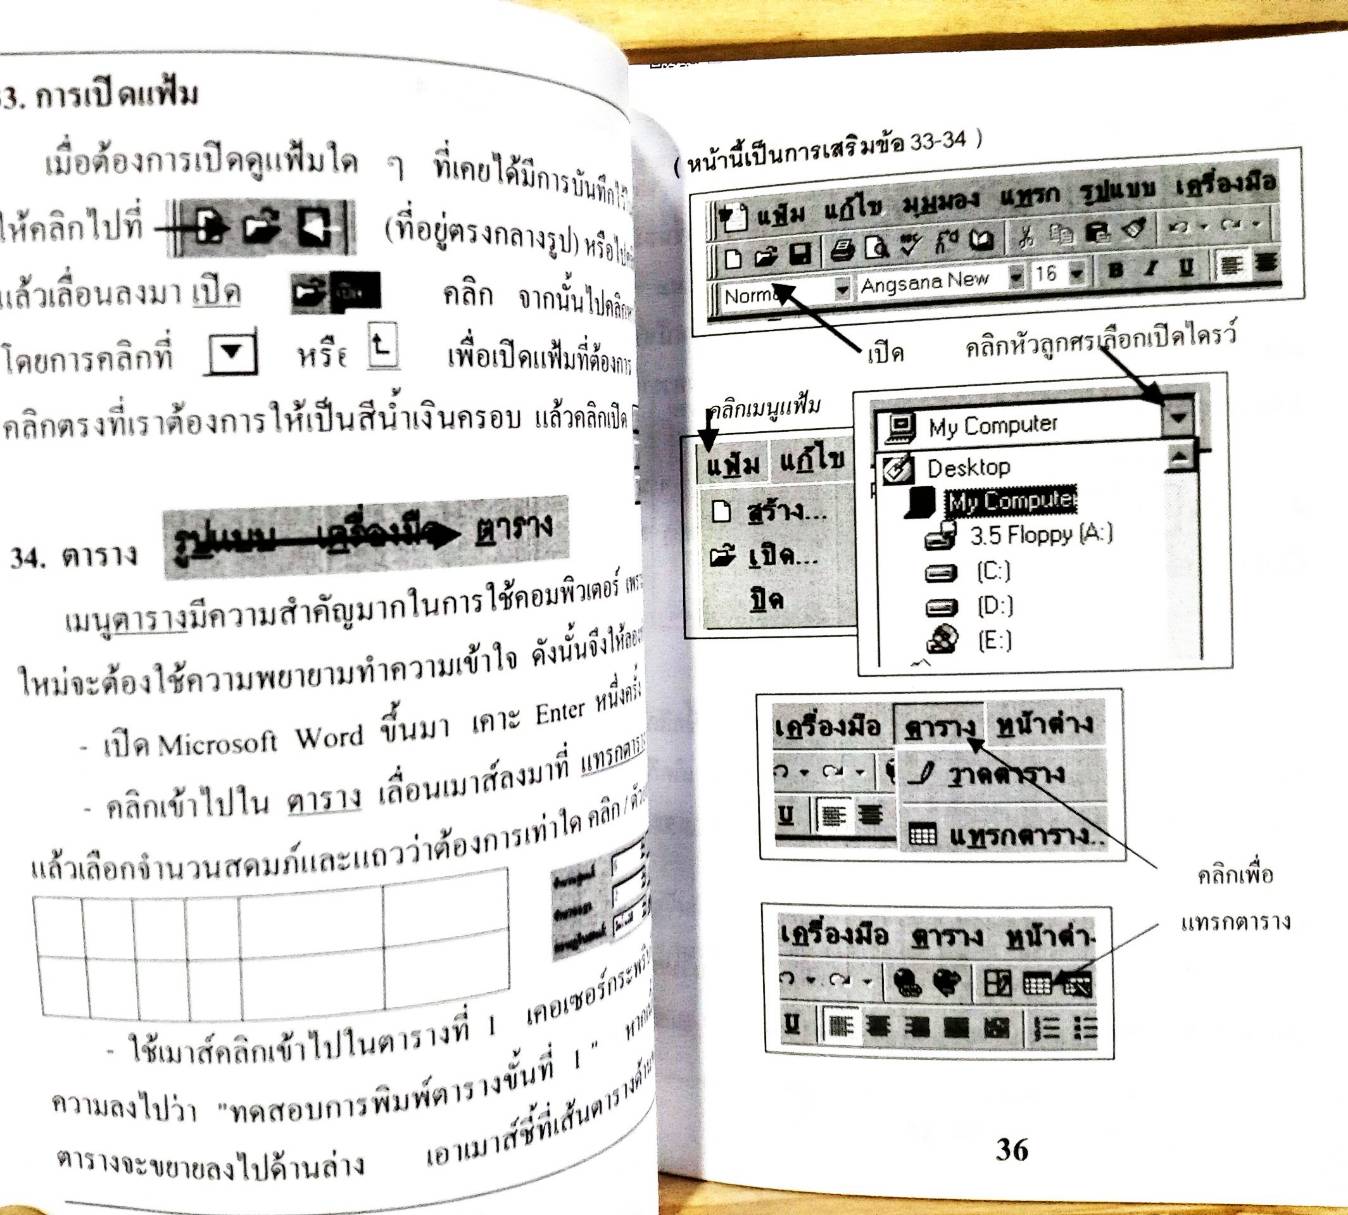 33. การเปิดแฟ้ม
เมื่อต้องการเปิดดูแฟ้มใด ๆ ที่เคยได้มีการบันทึกไว้
ให้คลิกไปที่ (ที่อยู่ตรงกลางรูป) หรือ
แล้วเลื่อนลงมา เปิด คลิก จากนั้นไปคลิก
โดยการคลิกที่ หรือ เพื่อเปิดแฟ้มที่ต้องการ
คลิกตรงที่เราต้องการให้เป็นสีน้ำเงินครอบ แล้วคลิกเปิด
34. ตาราง รูปแบบ เครื่องมือ ตาราง
เมนูตารางมีความสำคัญมากในการใช้คอมพิวเตอร์
ใหม่จะต้องใช้ความพยายามทำความเข้าใจ ดังนั้นจึงให้
- เปิด Microsoft Word ขึ้นมา เคาะ Enter หนึ่งครั้ง
- คลิกเข้าไปใน ตาราง เลื่อนเมาส์ลงมาที่ แทรกตาราง
แล้วเลือกจำนวนสดมภ์และแถวว่าต้องการเท่าใด คลิก /
- ใช้เมาส์คลิกเข้าไปในตารางที่ 1 เคอเซอร์กระพริบ
ความลงไปว่า "ทดสอบการพิมพ์ตารางขั้นที่ 1"
ตารางจะขยายลงไปด้านล่าง เอาเมาส์ชี้ที่เส้นตาราง
( หน้านี้เป็นการเสริมข้อ 33-34 )
แฟ้ม แก้ไข มุมมอง แทรก รูปแบบ เครื่องมือ
Angsana New 16 B I U
เปิด
คลิกหัวลูกศรเลือกเปิดไดรว์
คลิกเมนูแฟ้ม
แฟ้ม แก้ไข
สร้าง...
เปิด...
ปิด
My Computer
Desktop
My Computer
3.5 Floppy (A:)
(C:)
(D:)
(E:)
เครื่องมือ ตาราง หน้าต่าง
วาดตาราง
U
แทรกตาราง..
คลิกเพื่อ
แทรกตาราง
เครื่องมือ ตาราง หน้าต่าง
U
36